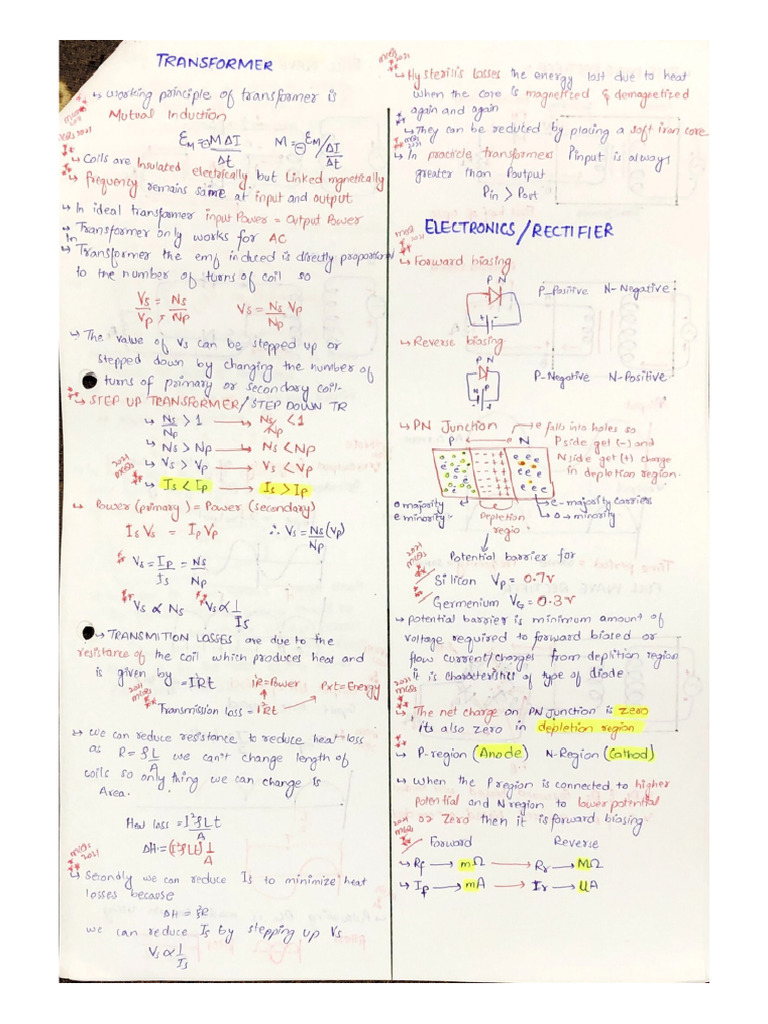 TRANSFORMER
↳ working principle of transformer is
Mutual Induction
MCQs 2021
εM = ⊖MΔI/Δt   M = ⊖εM/ΔI/Δt
↳ Coils are Insulated electrically but Linked mgnetically
↳ frequency remains same at input and output
↳ In ideal transformer input Power = Output Power
↳ Transformer only works for AC
In
↳ Transformer the emf induced is directly proportion
to the number of turns of coil so
Vs/Vp = Ns/Np   Vs = Ns/Np Vp
↳ The value of Vs can be stepped up or
stepped down by changing the number of
turns of primary or secondary coil.
↳ STEP UP TRANSFORMER/STEP DOWN TR
↳ Ns/Np > 1 → Ns/Np < 1
↳ Ns > Np → Ns < Np
↳ Vs > Vp → Vs < Vp
2021
↳ Is < Ip → Is > Ip
↳ Power (primary) = Power (secondary)
Is Vs = Ip Vp   ∴ Vs = Ns/Np (Vp)
Vs = Ip/Is = Ns/Np
Vs ∝ Ns   Vs ∝ 1/Is
↳ TRANSMITION LOSSES are due to the
resistance of the coil which produces heat and
is given by = I²Rt   I²R = Power   Pxt = Energy
2021 MCQs
Transmission loss = I²Rt
↳ we can reduce resistance to reduce heat loss
as R = ρL/A we can't change length of
coils so only thing we can change is
Area.
Heat loss = I²ρLt/A
ΔH = (I²ρLt) 1/A
MCQs 2021
↳ Secondly we can reduce Is to minimize heat
losses because
ΔH = I²R
we can reduce Is by stepping up Vs
Vs ∝ 1/Is
MCQs 2021
↳ Hysterilis losses the energy lost due to heat
when the core is magnetized & demagnetized
again and again
↳ They can be reduced by placing a soft iron core
MCQs 2021
↳ In practicle transformers Pinput is always
greater than Poutput
Pin > Pout
ELECTRONICS/RECTIFIER
MCQ 2021
↳ Forward biasing
P N
P-Positive N-Negative
+ -
↳ Reverse biasing
P N
P-Negative N-Positive
N P
- +
↳ PN Junction
e falls into holes so
P side get (-) and
N side get (+) charge
in depletion region.
P ← → N
o majority
e minority
Depletion
regio
e- majority carriers
o → minority
Potential barrier for
2021 MCQs
Silicon Vp = 0.7v
Germenium VG = 0.3v
↳ potential barrier is minimum amount of
voltage required to forward biased or
flow current/charges from deplition region
it is characteristics of type of diode
2021 MCQs
↳ The net charge on PN junction is zero
its also zero in depletion region
↳ P-region (Anode) N-Region (Cathod)
↳ When the P region is connected to higher
potential and N region to lower potential
or Zero then it is forward biasing
2021 MCQs
Forward   Reverse
↳ Rf → mΩ → Rr → MΩ
↳ If → mA → Ir → μA